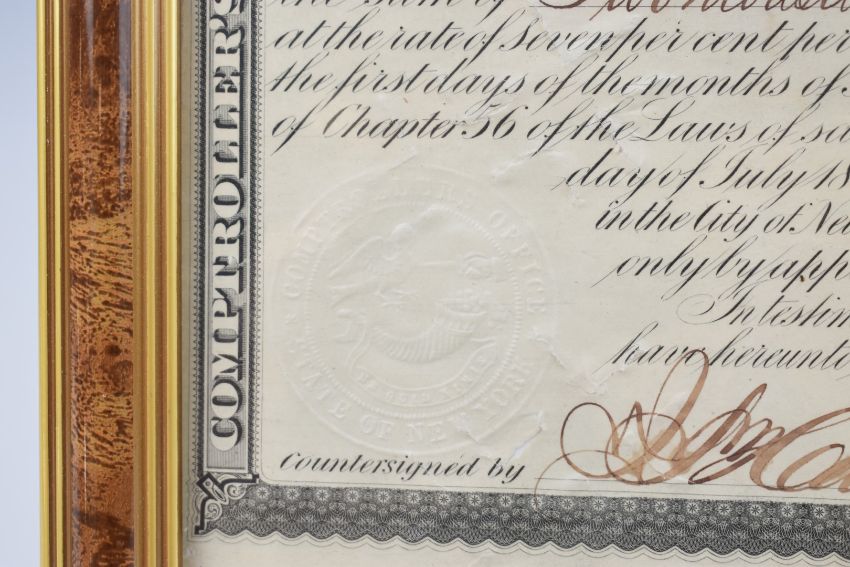 the sum of
at the rate of seven per cent per
the first days of the months of
of Chapter 56 of the Laws of sa
day of July 18
in the City of New
only by app
In testim
have hereunto
Countersigned by
COMPTROLLER'S
COMPTROLLER'S OFFICE
STATE OF NEW YORK